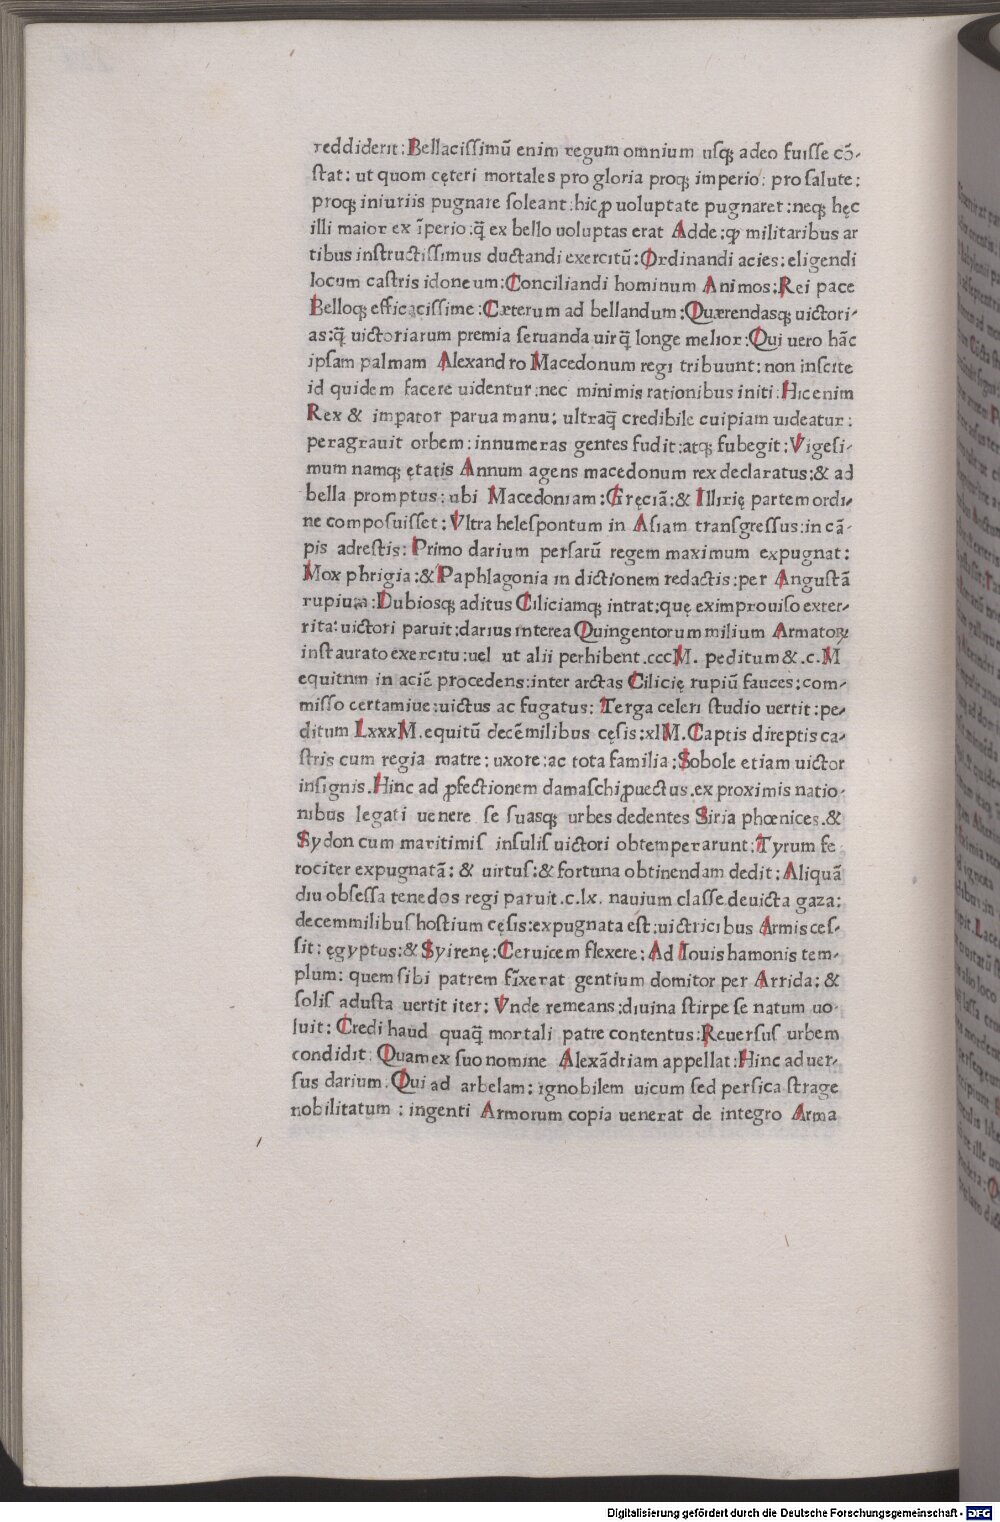 reddiderit: Bellacissimū enim regum omnium usq; adeo fuisse cō-
stat: ut quom cęteri mortales pro gloria proq; imperio: pro salute:
proq; iniuriis pugnare soleant: hic ꝓ uoluptate pugnaret: neq; hęc
illi maior ex īperio: q̄ ex bello uoluptas erat Adde: ꝙ militaribus ar
tibus instructissimus ductandi exercitū: Ordinandi acies: eligendi
locum castris idoneum: Conciliandi hominum Animos: Rei pace
Belloq; efficacissime: Cæterum ad bellandum: Quærendasq; uictori-
as: q̄ uictoriarum premia seruanda uir q̄ longe melior: Qui uero hāc
ipsam palmam Alexandro Macedonum regi tribuunt: non inscite
id quidem facere uidentur: nec minimis rationibus initi: Hic enim
Rex & impator parua manu: ultraq̄ credibile cuipiam uideatur:
peragrauit orbem: innumeras gentes fudit: atq; subegit: Vigesi-
mum namq; ętatis Annum agens macedonum rex declaratus: & ad
bella promptus: ubi Macedoniam: Gręciā: & Illirię partem ordi-
ne composuisset: Vltra helespontum in Asiam transgressus: in cā-
pis adrestis: Primo darium persarū regem maximum expugnat:
Mox phrigia: & Paphlagonia in dictionem redactis: per Angustā
rupium: Dubiosq; aditus Ciliciamq; intrat: quę eximprouiso exter-
rita: uictori paruit: darius interea Quingentorum milium Armatoꝝ
instaurato exercitu: uel ut alii perhibent .cccM. peditum & .c.M
equitnm in aciē procedens: inter arctas Cilicię rupiū fauces: com-
misso certamiue: uictus ac fugatus: Terga celeri studio uertit: pe-
ditum LxxxM. equitū decēmilibus cęsis: xlM. Captis direptis ca-
stris cum regia matre: uxore: ac tota familia: Sobole etiam uictor
insignis. Hinc ad ꝓfectionem damaschi ꝓuectus. ex proximis natio-
nibus legati uenere se suasq; urbes dedentes Siria phœnices. &
Sydon cum maritimis insulis uictori obtemperarunt: Tyrum fe-
rociter expugnatā: & uirtus: & fortuna obtinendam dedit: Aliquā
diu obsessa tenedos regi paruit. c. lx. nauium classe deuicta gaza:
decemmilibus hostium cęsis: expugnata est: uictricibus Armis ces-
sit: ęgyptus: & Syirenę: Ceruicem flexere: Ad Iouis hamonis tem-
plum: quem sibi patrem fīxerat gentium domitor per Arrida: &
solis adusta uertit iter: Vnde remeans: diuina stirpe se natum uo-
luit: Credi haud quaq̄ mortali patre contentus: Reuersus urbem
condidit: Quam ex suo nomine Alexādriam appellat: Hinc aduer-
sus darium. Qui ad arbelam: ignobilem uicum sed persica strage
nobilitatum: ingenti Armorum copia uenerat de integro Arma
Digitalisierung gefördert durch die Deutsche Forschungsgemeinschaft - DFG